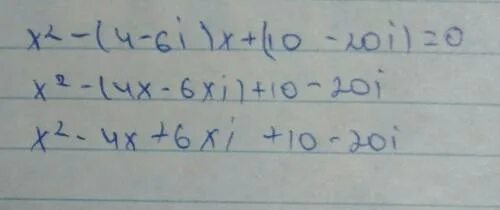 x² - (4 - 6i)x + (10 - 20i) = 0
x² - (4x - 6xi) + 10 - 20i
x² - 4x + 6xi + 10 - 20i